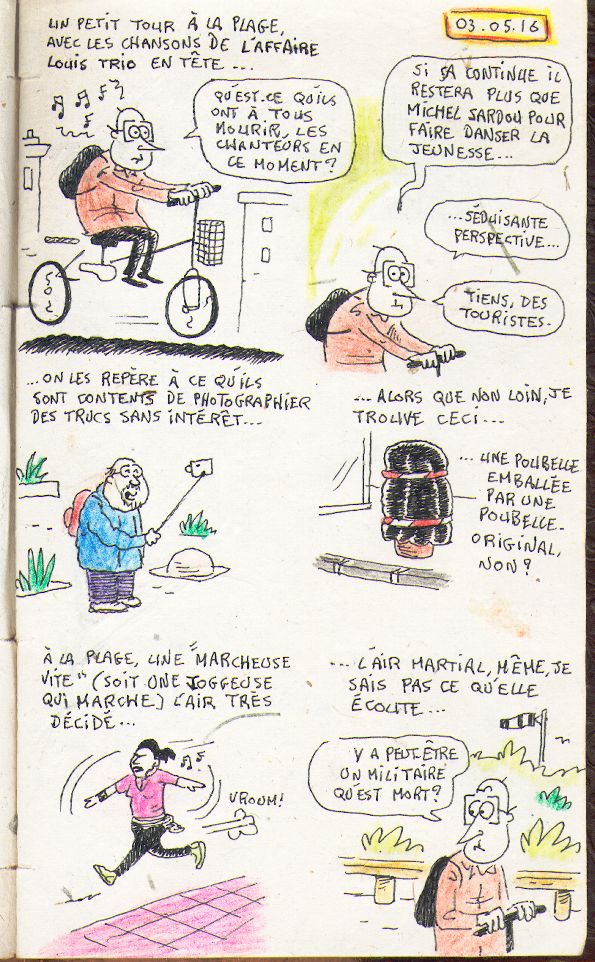 UN PETIT TOUR À LA PLAGE,
AVEC LES CHANSONS DE L'AFFAIRE
LOUIS TRIO EN TÊTE ...
03.05.16
QU'EST-CE QU'ILS
ONT À TOUS
MOURIR, LES
CHANTEURS EN
CE MOMENT?
SI ÇA CONTINUE IL
RESTERA PLUS QUE
MICHEL SARDOU POUR
FAIRE DANSER LA
JEUNESSE...
...SÉDUISANTE
PERSPECTIVE...
TIENS, DES
TOURISTES.
...ON LES REPÈRE À CE QU'ILS
SONT CONTENTS DE PHOTOGRAPHIER
DES TRUCS SANS INTÉRÊT...
... ALORS QUE NON LOIN, JE
TROUVE CECI...
... UNE POUBELLE
EMBALLÉE
PAR UNE
POUBELLE.
ORIGINAL,
NON?
À LA PLAGE, UNE "MARCHEUSE
VITE" (SOIT UNE JOGGEUSE
QUI MARCHE) L'AIR TRÈS
DÉCIDÉ...
VROUM!
... L'AIR MARTIAL, MÊME, JE
SAIS PAS CE QU'ELLE
ÉCOUTE...
Y A PEUT-ÊTRE
UN MILITAIRE
QU'EST MORT?